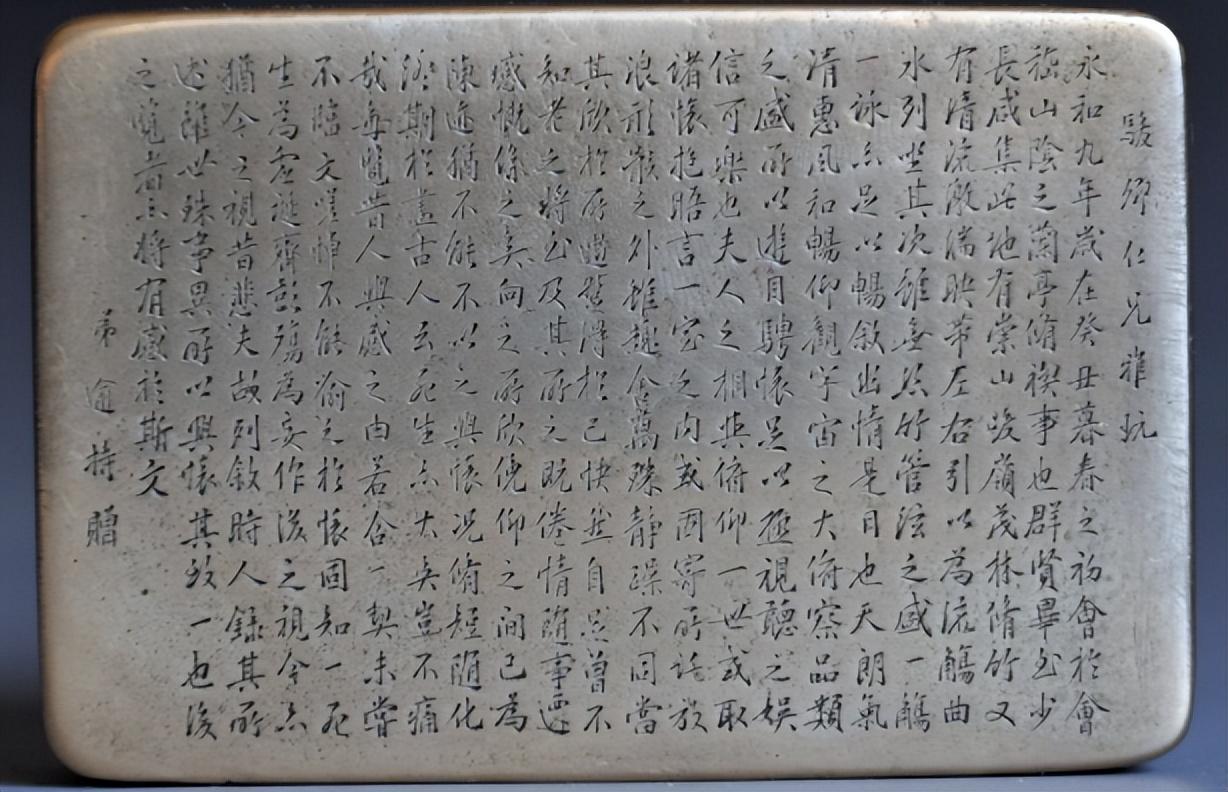 駿卿仁兄雅玩
永和九年歲在癸丑暮春之初會於會
嵇山陰之蘭亭脩禊事也群賢畢至少
長咸集此地有崇山峻嶺茂林脩竹又
有清流激湍映帶左右引以為流觴曲
水列坐其次雖無絲竹管弦之盛一觴
一詠亦足以暢敘幽情是日也天朗氣
清惠風和暢仰觀宇宙之大俯察品類
之盛所以遊目騁懷足以極視聽之娛
信可樂也夫人之相與俯仰一世或取
諸懷抱晤言一室之內或因寄所託放
浪形骸之外雖趣舍萬殊靜躁不同當
其欣於所遇暫得於己快然自足曾不
知老之將至及其所之既倦情隨事遷
感慨係之矣向之所欣俛仰之間已為
陳迹猶不能不以之興懷況脩短隨化
終期於盡古人云死生亦大矣豈不痛
哉每覽昔人興感之由若合一契未嘗
不臨文嗟悼不能喻之於懷固知一死
生為虛誕齊彭殤為妄作後之視今亦
猶今之視昔悲夫故列敘時人錄其所
述雖世殊事異所以興懷其致一也後
之覽者亦將有感於斯文
弟持贈